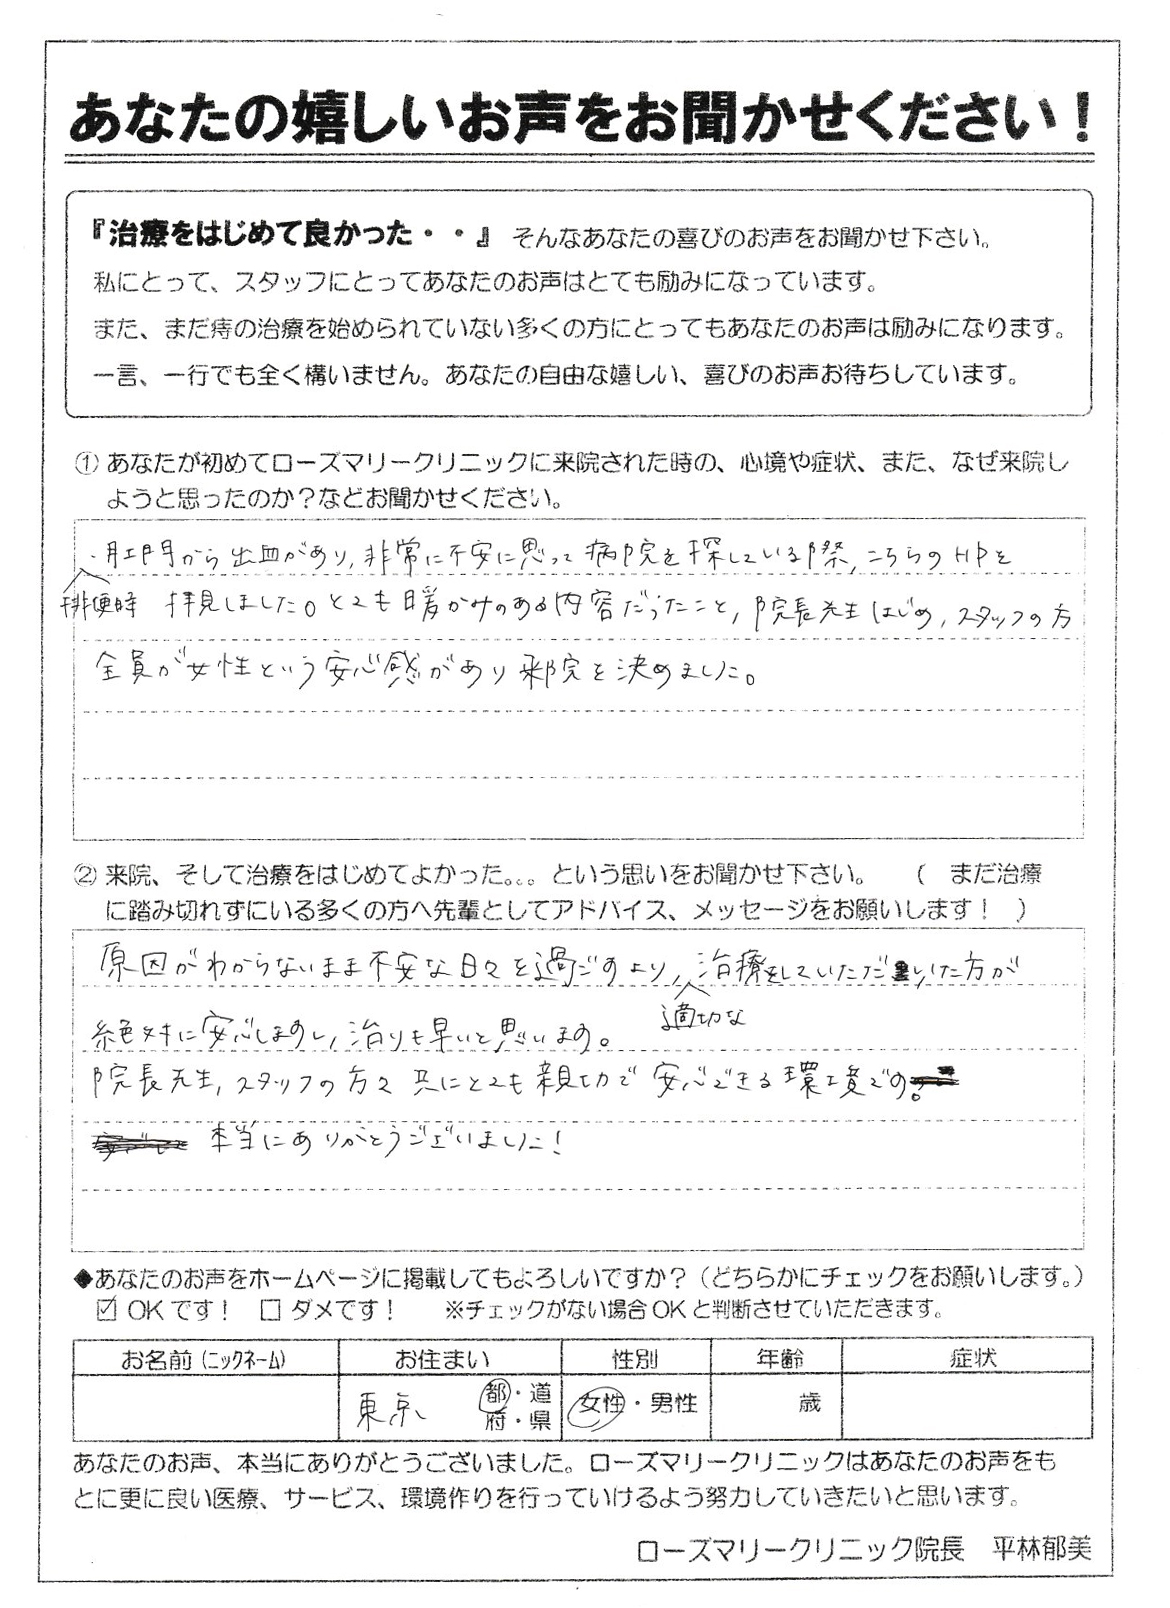 あなたの嬉しいお声をお聞かせください！
『治療をはじめて良かった・・』 そんなあなたの喜びのお声をお聞かせ下さい。
私にとって、スタッフにとってあなたのお声はとても励みになっています。
また、まだ痔の治療を始められていない多くの方にとってもあなたのお声は励みになります。
一言、一行でも全く構いません。あなたの自由な嬉しい、喜びのお声お待ちしています。
① あなたが初めてローズマリークリニックに来院された時の、心境や症状、また、なぜ来院し
ようと思ったのか？などお聞かせください。
・肛門から出血があり、非常に不安に思って病院を探している際、こちらのHPを
排便時 拝見しました。とても暖かみのある内容だったこと、院長先生はじめ、スタッフの方
全員が女性という安心感があり来院を決めました。
② 来院、そして治療をはじめてよかった。。。という思いをお聞かせ下さい。 （ まだ治療
に踏み切れずにいる多くの方へ先輩としてアドバイス、メッセージをお願いします！ ）
原因がわからないまま不安な日々を過ごすより、治療をしていただいた方が
適切な
絶対に安心しますし、治りも早いと思います。
院長先生、スタッフの方々 共にとても親切で 安心できる環境です。
本当にありがとうございました！
◆あなたのお声をホームページに掲載してもよろしいですか？（どちらかにチェックをお願いします。）
☑ OKです！ □ ダメです！ ※チェックがない場合OKと判断させていただきます。
お名前（ニックネーム） お住まい 性別 年齢 症状
東京 都・道 女性・男性 歳
府・県
あなたのお声、本当にありがとうございました。ローズマリークリニックはあなたのお声をも
とに更に良い医療、サービス、環境作りを行っていけるよう努力していきたいと思います。
ローズマリークリニック院長 平林郁美